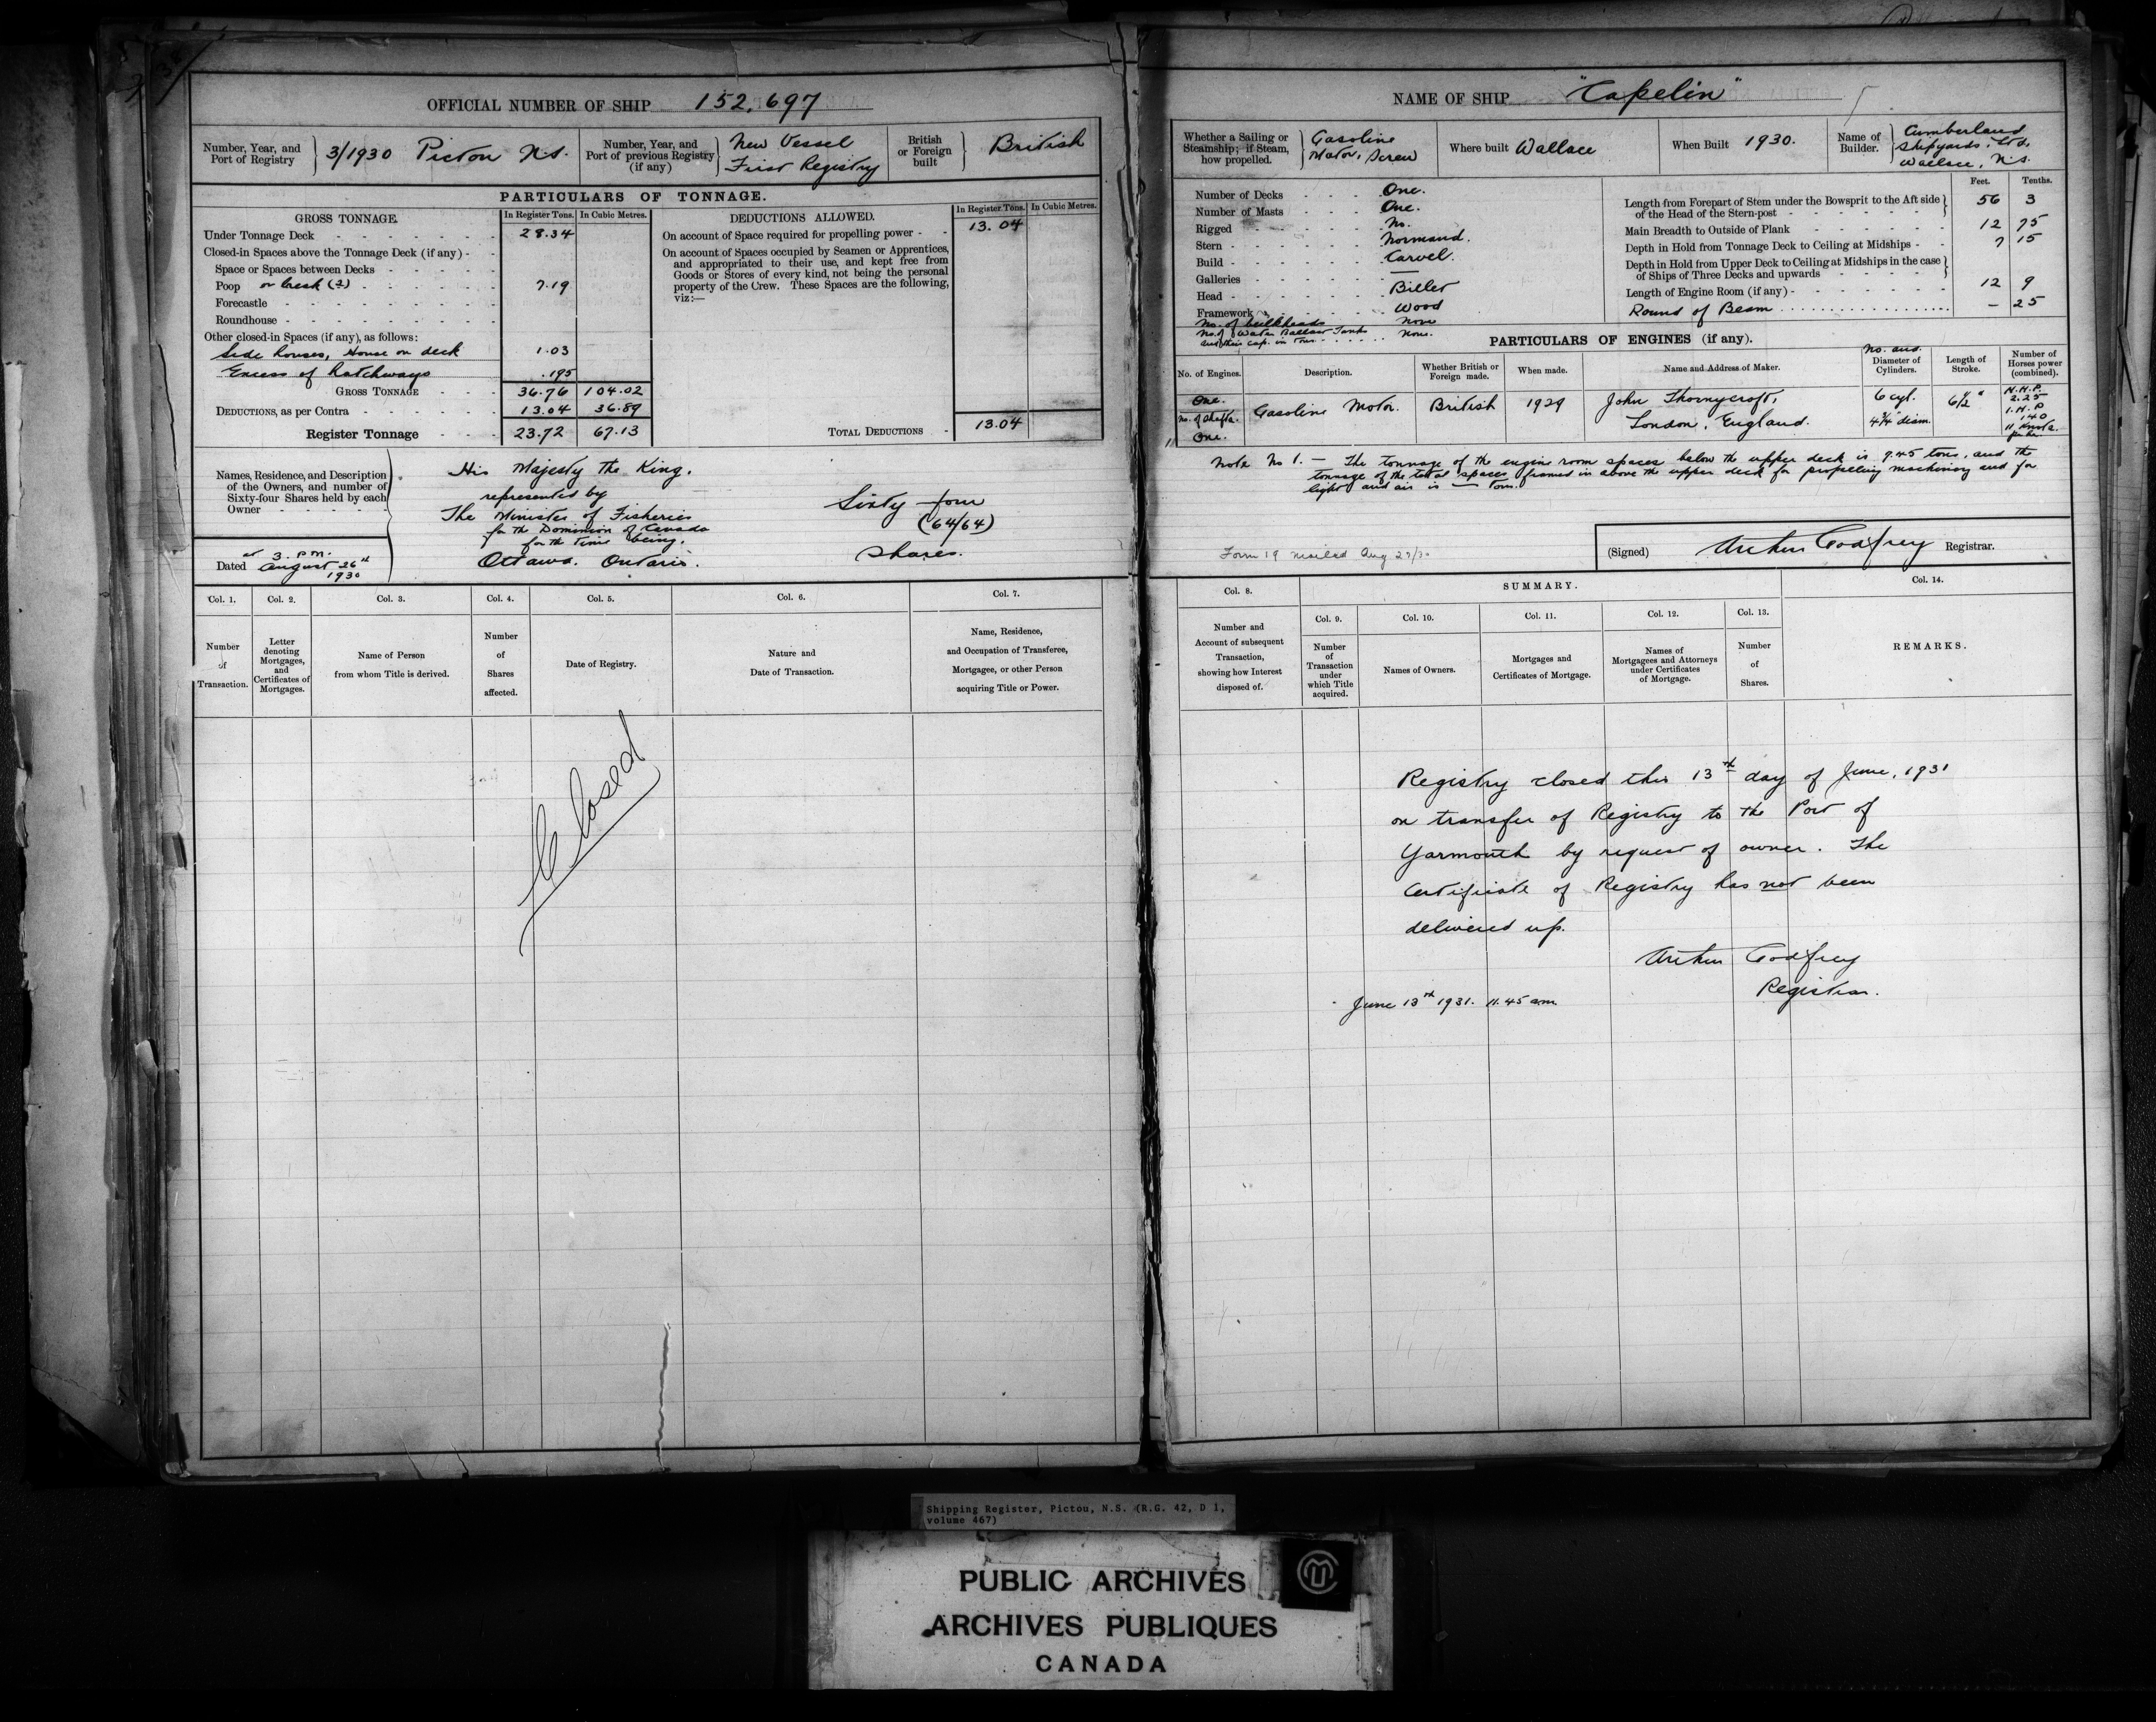 OFFICIAL NUMBER OF SHIP 152,697
Number, Year, and Port of Registry 3/1930 Pictou N.S.
Number, Year, and Port of previous Registry (if any) New Vessel First Registry
British or Foreign built British
PARTICULARS OF TONNAGE.
GROSS TONNAGE. In Register Tons. In Cubic Metres.
Under Tonnage Deck 28.34
Closed-in Spaces above the Tonnage Deck (if any)
Space or Spaces between Decks
Poop or break (2) 7.19
Forecastle
Roundhouse
Other closed-in Spaces (if any), as follows:
Side houses, House on deck 1.03
Excess of hatchways .195
GROSS TONNAGE 36.76 104.02
DEDUCTIONS, as per Contra 13.04 36.89
Register Tonnage 23.72 67.13
DEDUCTIONS ALLOWED. In Register Tons. In Cubic Metres.
On account of Space required for propelling power 13.04
On account of Spaces occupied by Seamen or Apprentices,
and appropriated to their use, and kept free from
Goods or Stores of every kind, not being the personal
property of the Crew. These Spaces are the following,
viz:—
TOTAL DEDUCTIONS 13.04
Names, Residence, and Description
of the Owners, and number of
Sixty-four Shares held by each
Owner
His Majesty the King.
represented by
The Minister of Fisheries
for the Dominion of Canada
for the time being.
Ottawa. Ontario.
Sixty four
(64/64)
Shares.
at 3. P.M.
Dated August 26th
1930
Col. 1. Col. 2. Col. 3. Col. 4. Col. 5. Col. 6. Col. 7.
Number of Transaction.
Letter denoting Mortgages, and Certificates of Mortgages.
Name of Person from whom Title is derived.
Number of Shares affected.
Date of Registry.
Nature and Date of Transaction.
Name, Residence, and Occupation of Transferee, Mortgagee, or other Person acquiring Title or Power.
Closed
NAME OF SHIP "Capelin"
Whether a Sailing or Steamship; if Steam, how propelled. Gasoline Motor, Screw
Where built Wallace
When Built 1930.
Name of Builder. Cumberland Shipyards. Ltd. Wallace, N.S.
Number of Decks One.
Number of Masts One.
Rigged No.
Stern Normand.
Build Carvel.
Galleries —
Head Billet
Framework Wood
No. of bulkheads none
No. of Water Ballast Tanks
and their cap. in tons none.
Feet. Tenths.
Length from Forepart of Stem under the Bowsprit to the Aft side
of the Head of the Stern-post 56 3
Main Breadth to Outside of Plank 12 75
Depth in Hold from Tonnage Deck to Ceiling at Midships 7 15
Depth in Hold from Upper Deck to Ceiling at Midships in the case
of Ships of Three Decks and upwards
Length of Engine Room (if any) 12 9
Round of Beam — 25
PARTICULARS OF ENGINES (if any).
No. of Engines. Description. Whether British or Foreign made. When made. Name and Address of Maker. No. and Diameter of Cylinders. Length of Stroke. Number of Horses power (combined).
One. No. of Shafts. One.
Gasoline Motor. British 1929
John Thornycroft,
London, England.
6 cyl. 4¾" diam.
6½"
N.H.P. 2.25
I.H.P 140
11 Knots
per hr.
Note No 1. — The tonnage of the engine room spaces below the upper deck is 9.45 tons, and the
tonnage of the total spaces framed in above the upper deck for propelling machinery and for
light and air is — tons.
Form 19 mailed Aug 27/30
(Signed) Arthur Godfrey Registrar.
Col. 8. SUMMARY. Col. 14.
Col. 9. Col. 10. Col. 11. Col. 12. Col. 13.
Number and Account of subsequent Transaction, showing how Interest disposed of.
Number of Transaction under which Title acquired.
Names of Owners.
Mortgages and Certificates of Mortgage.
Names of Mortgagees and Attorneys under Certificates of Mortgage.
Number of Shares.
REMARKS.
Registry closed this 13th day of June, 1931
on transfer of Registry to the Port of
Yarmouth by request of owner. The
Certificate of Registry has not been
delivered up.
Arthur Godfrey
Registrar.
June 13th 1931. 11.45 a.m.
Shipping Register, Pictou, N.S. (R.G. 42, D 1,
volume 467)
PUBLIC ARCHIVES
ARCHIVES PUBLIQUES
CANADA